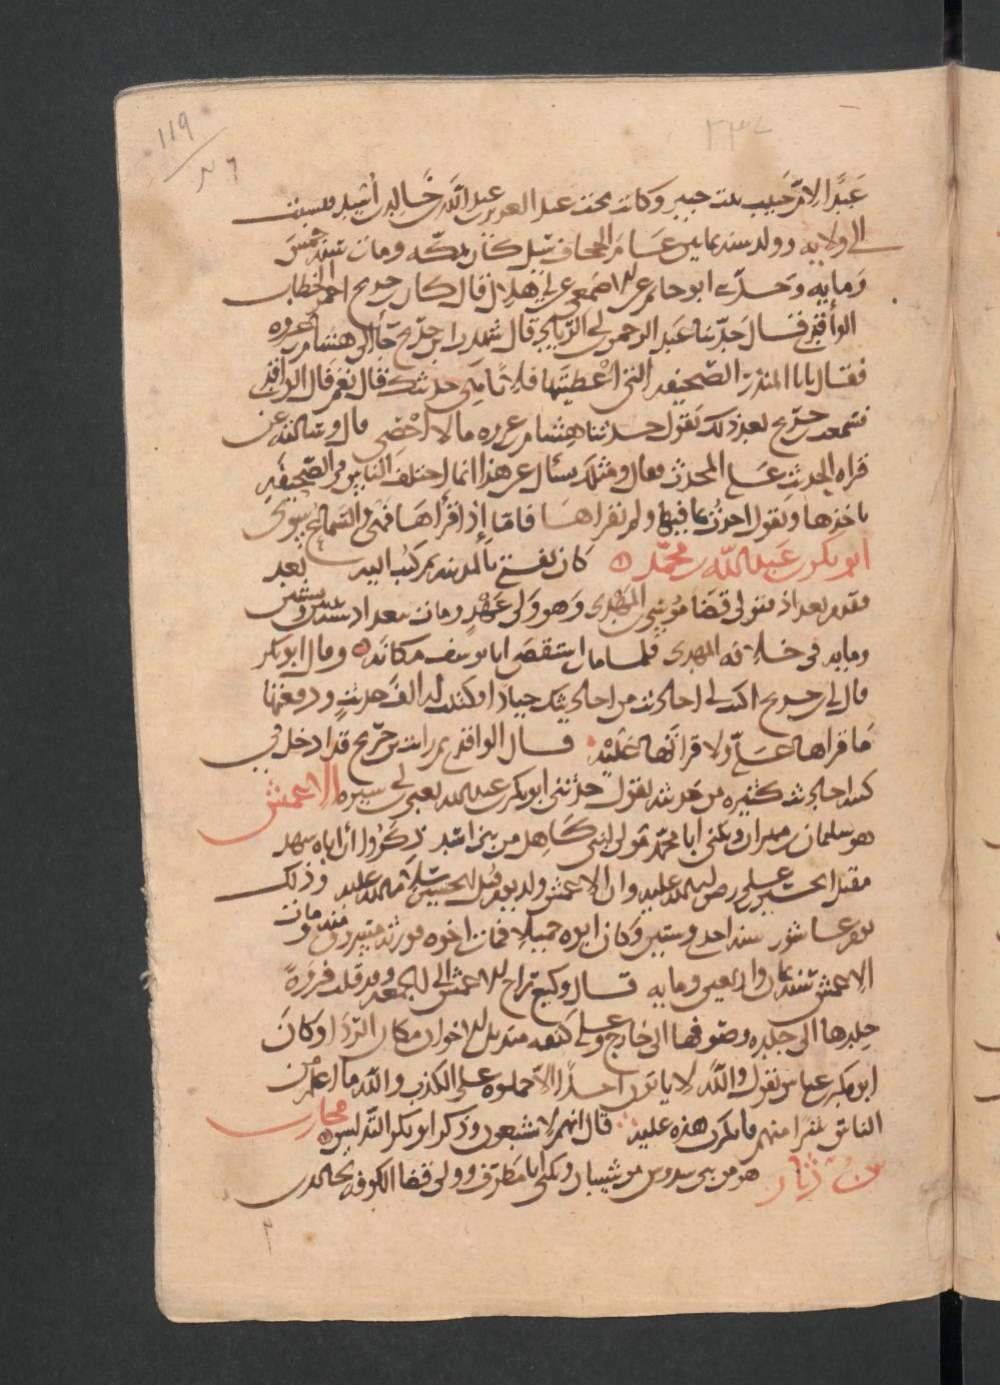 ١١٩
٢٣٧
عبدًا لام حبيب بنت جبير وكانت تحت عبد العزيز بن عبد الله بن خالد بن اسيد فنسب
الى ولايه وولد سنه ثمانين عام الجحاف سيل كان بمكه ومات سنه خمسين
ومايه وحدثنى ابو حاتم عن الاصمعى عن ابى هلال قال كان جريج احمر الخطاب
الواقدى قال حدثنا عبد الرحمن بن ابى الزناد قال شهدت ابن جريج جا الى هشام بن عروه
فقال يابا المنذر الصحيفه التى اعطيتها فلانا هى حديثك قال نعم قال الواقدى
فسمعت جريج بعد ذلك يقول حدثنا هشام بن عروه ما لا احصى قال وسالته عن
قراه الحديث على المحدث فقال ومثلك يسئل عن هذا انما اختلف الناس فى الصحيفه
ياخذها ويقول احدث بما فيها ولم يقراها فاما اذا قراها فهى والسماع سوى
ابو بكر بن عبد الله بن محمد كان يفتى بالمدينه ثم كتب اليه بعد
فقدم بغداد فتولى قضا موسى المهدى وهو ولى عهد ومات ببغداد سنه اثنتين وستين
ومايه فى خلافه المهدى فلما مات استقضى ابا يوسف مكانه وقال ابو بكر
قال لى ابن جريج اكتب لى احاديث من احاديثك جيادا فكتبت له الف حديث ودفعتها
ما قراها على ولا قراتها عليه قال الواقدى ثم رايت بن جريج قد ادخل فى
كتبه احاديث كثيره من حديثه يقول حدثنى ابو بكر بن عبد الله يعنى ابن ابى سبره الاعمش
هو سليمان بن مهران ويكنى ابا محمد مولى لبنى كاهل من بنى اسد ذكروا ان اباه شهد
مقتل الحسين بن على رضى الله عليه وان الاعمش ولد يوم قتل الحسين سلام الله عليه وذلك
يوم عاشورا سنه احدى وستين وكان ابوه حميلا فمات اخوه فورثه مسروق منه ومات
الاعمش سنه ثمان واربعين ومايه قال وكيع راح الاعمش الى الجمعه وقد قلب فروه
جلدها الى جلده وصوفها الى خارج وعلى كتفه منديل الخوان مكان الردا وكان
ابو بكر بن عياش يقول والله لا ياتون احدًا الا حملوه على الكذب والله ما اعلم من
الناس شرا منهم فانكرت هذه عليه قال انهم لا يشبعون وذكر ابو بكر التدليس محارب
بن دثار هو من بنى سدوس من شيبان ويكنى ابا مطرف وولى قضا الكوفه لخالد بن